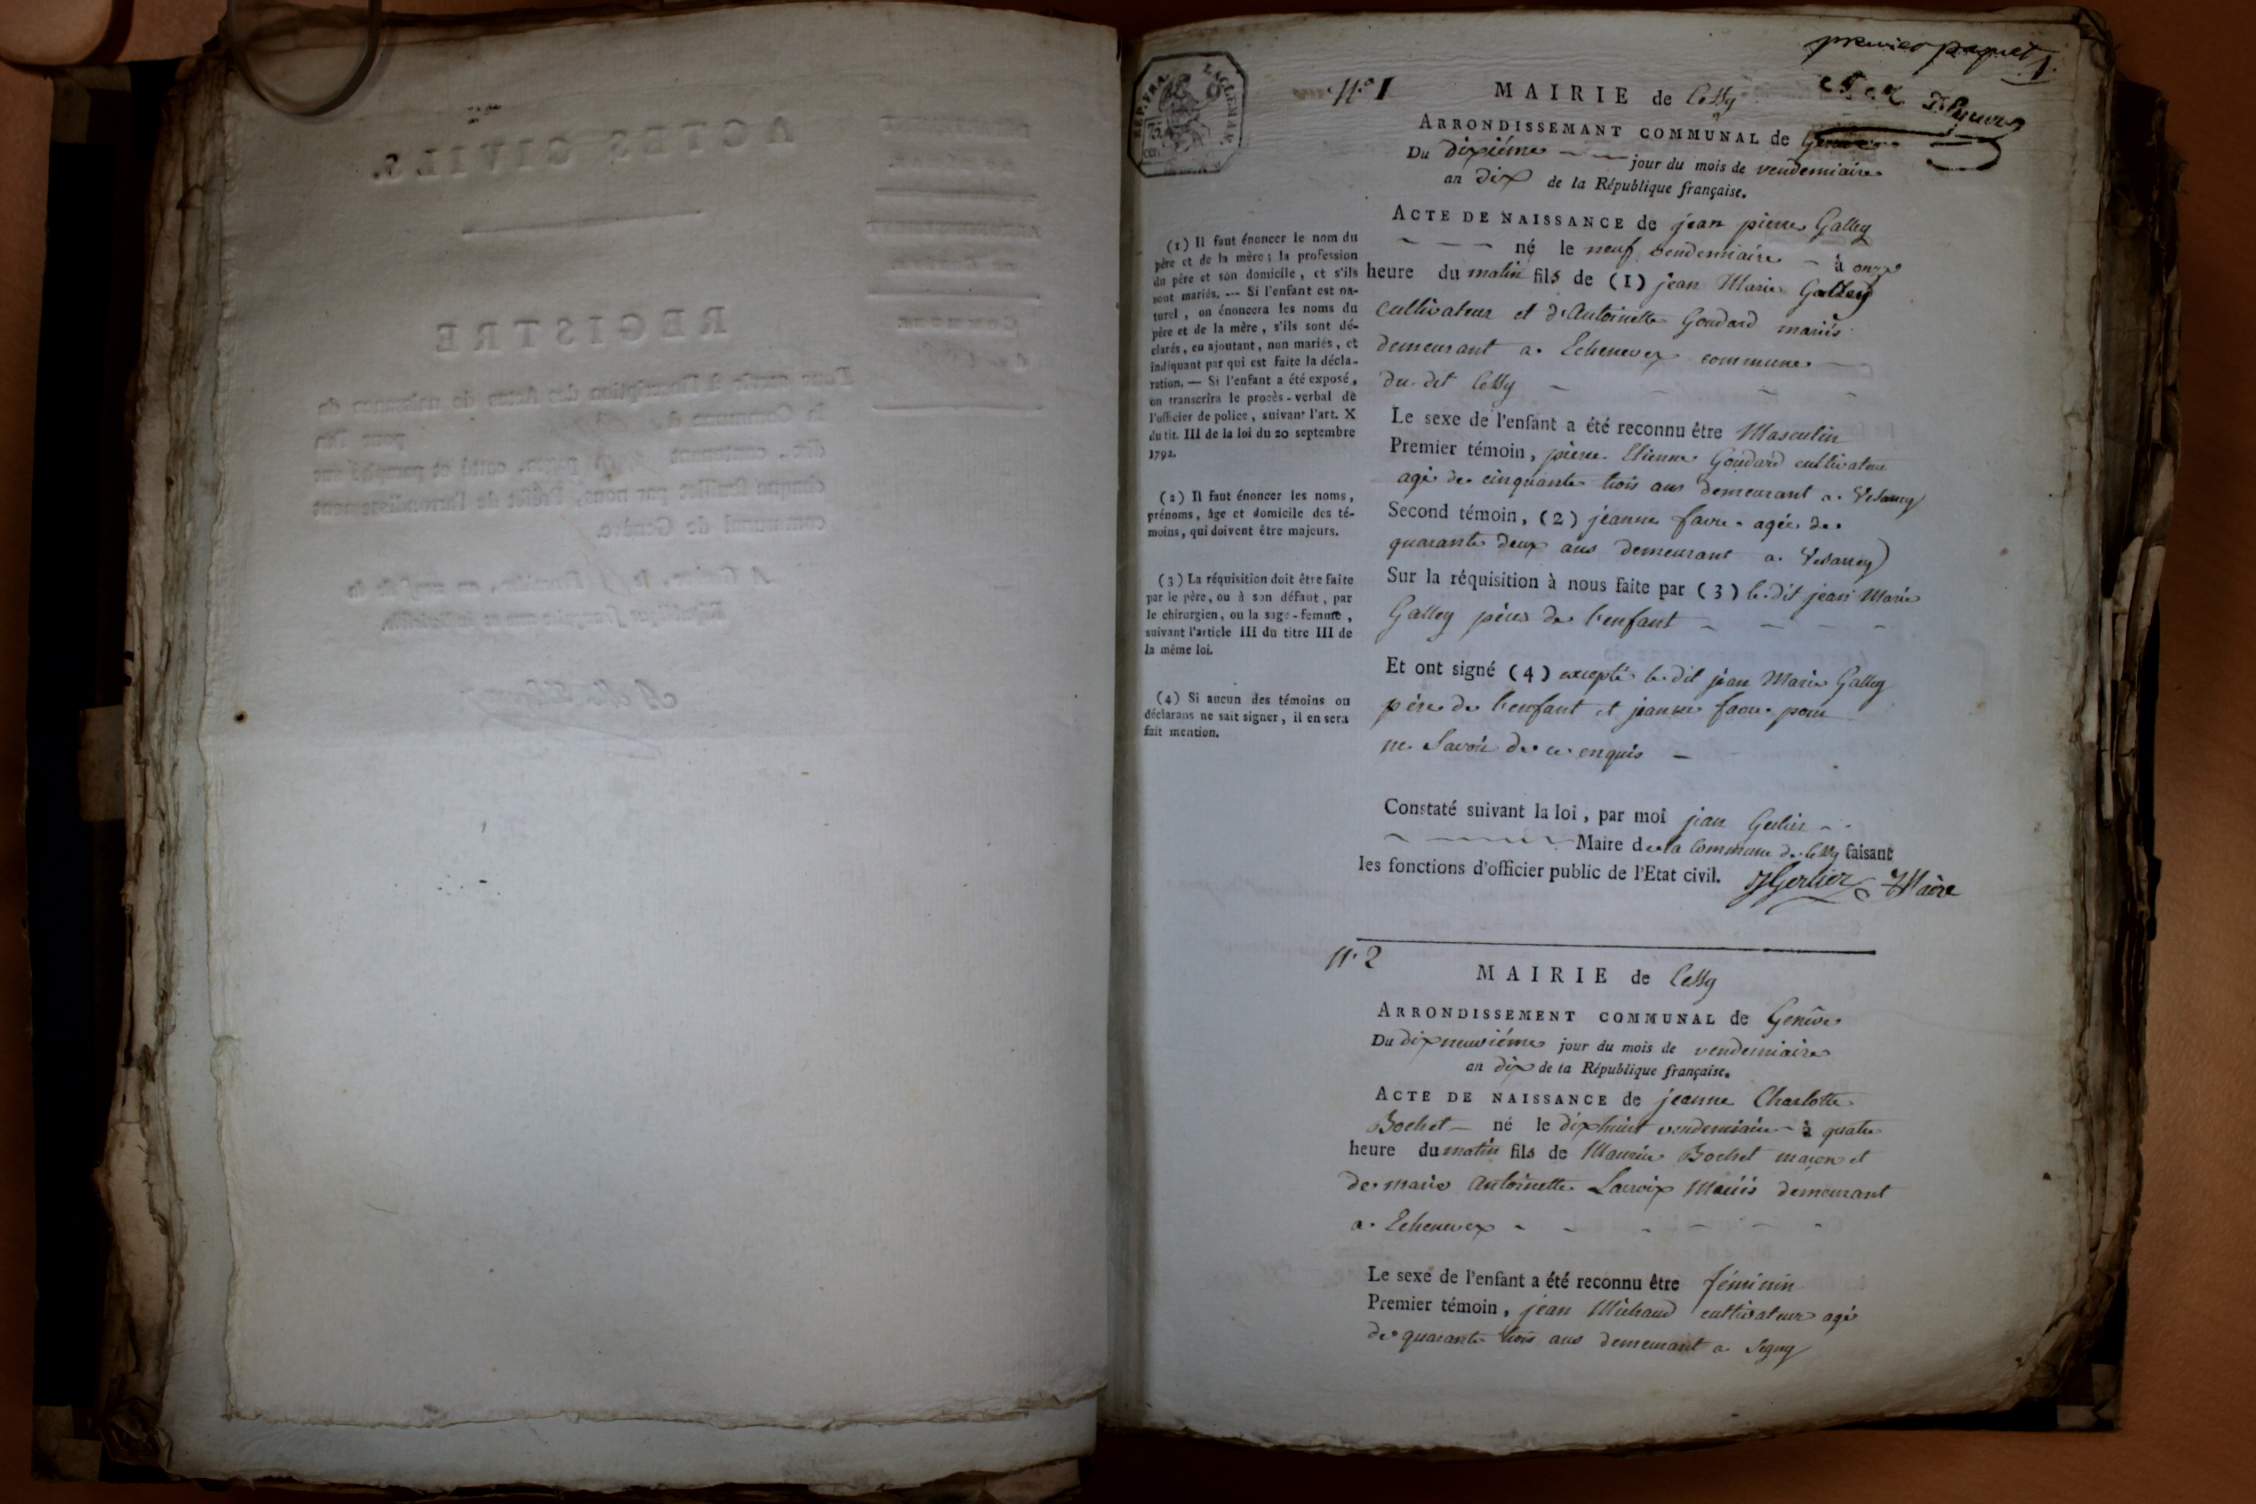 premier paquet 1.
N.° 1
MAIRIE de Cessy
ARRONDISSEMANT COMMUNAL de Genève
Du dixiéme jour du mois de vendemiaire
an dix de la République française.
ACTE DE NAISSANCE de jean pierre Galley
né le neuf vendemiaire à onze
heure du matin fils de (1) jean Marie Galley
cultivateur et d'Antoinette Goudard mariés
demeurant a Echenevex commune
du dit Cessy
Le sexe de l'enfant a été reconnu être Masculin
Premier témoin, pierre Etienne Goudard cultivateur
agé de cinquante trois ans demeurant a Vesancy
Second témoin, (2) jeanne favre agée de
quarante deux ans demeurant a Vesancy
Sur la réquisition à nous faite par (3) le dit jean Marie
Galley père de l'enfant
Et ont signé (4) excepté le dit jean Marie Galley
père de l'enfant et jeanne favre pour
ne Savoir de ce enquis
Constaté suivant la loi, par moi jean Gerlier
Maire de la Commune de Cessy faisant
les fonctions d'officier public de l'Etat civil. JGerlier Maire
(1) Il faut énoncer le nom du
père et de la mère ; la profession
du père et son domicile, et s'ils
sont mariés. -- Si l'enfant est na-
turel, on énoncera les noms du
père et de la mère, s'ils sont dé-
clarés, en ajoutant, non mariés, et
indiquant par qui est faite la décla-
ration. — Si l'enfant a été exposé,
on transcrira le procès-verbal de
l'officier de police, suivant l'art. X
du tit. III de la loi du 20 septembre
1792.
(2) Il faut énoncer les noms,
prénoms, âge et domicile des té-
moins, qui doivent être majeurs.
(3) La réquisition doit être faite
par le père, ou à son défaut, par
le chirurgien, ou la sage-femme,
suivant l'article III du titre III de
la même loi.
(4) Si aucun des témoins ou
déclarans ne sait signer, il en sera
fait mention.
N.° 2
MAIRIE de Cessy
ARRONDISSEMENT COMMUNAL de Genève
Du dixneuviéme jour du mois de vendemiaire
an dix de la République française.
ACTE DE NAISSANCE de jeanne Charlotte
Bochet né le dixhuit vendemiaire à quatre
heure du matin fils de Maurice Bochet maçon et
de marie Antoinette Lacroix Mariés demeurant
a Echenevex
Le sexe de l'enfant a été reconnu être féminin
Premier témoin, jean Michaud cultivateur agé
de quarante trois ans demeurant a Segny